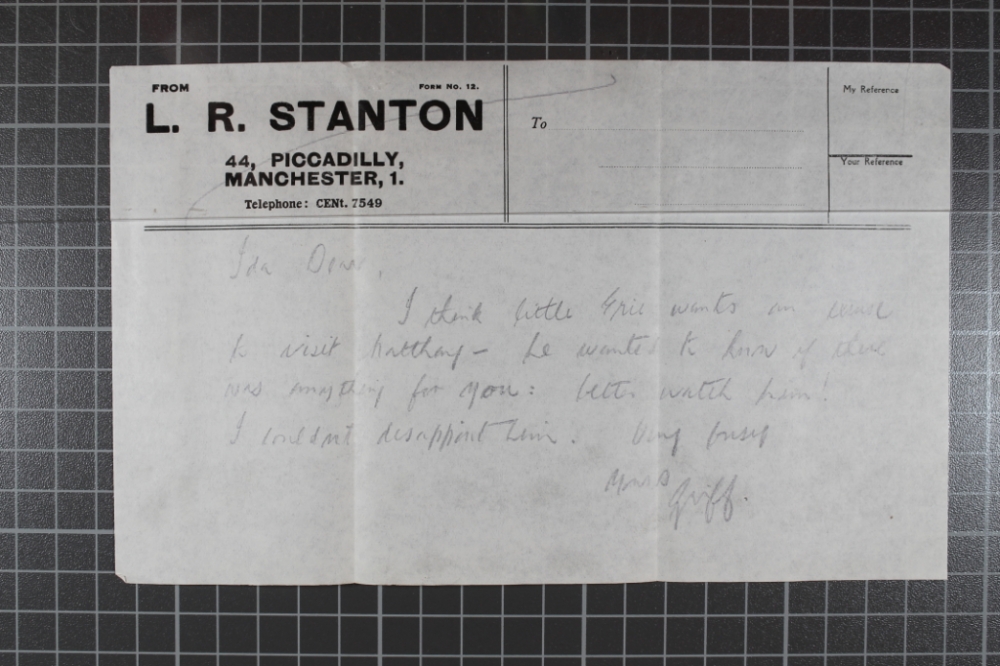 FROM
FORM NO. 12.
L. R. STANTON
44, PICCADILLY,
MANCHESTER, 1.
Telephone: CENt. 7549
To
My Reference
Your Reference
Ida Dear,
I think little Eric wants an excuse
to visit – he wanted to know if there
was anything for you: better watch him!
I couldn't disappoint him. Very busy
yours
Griff.